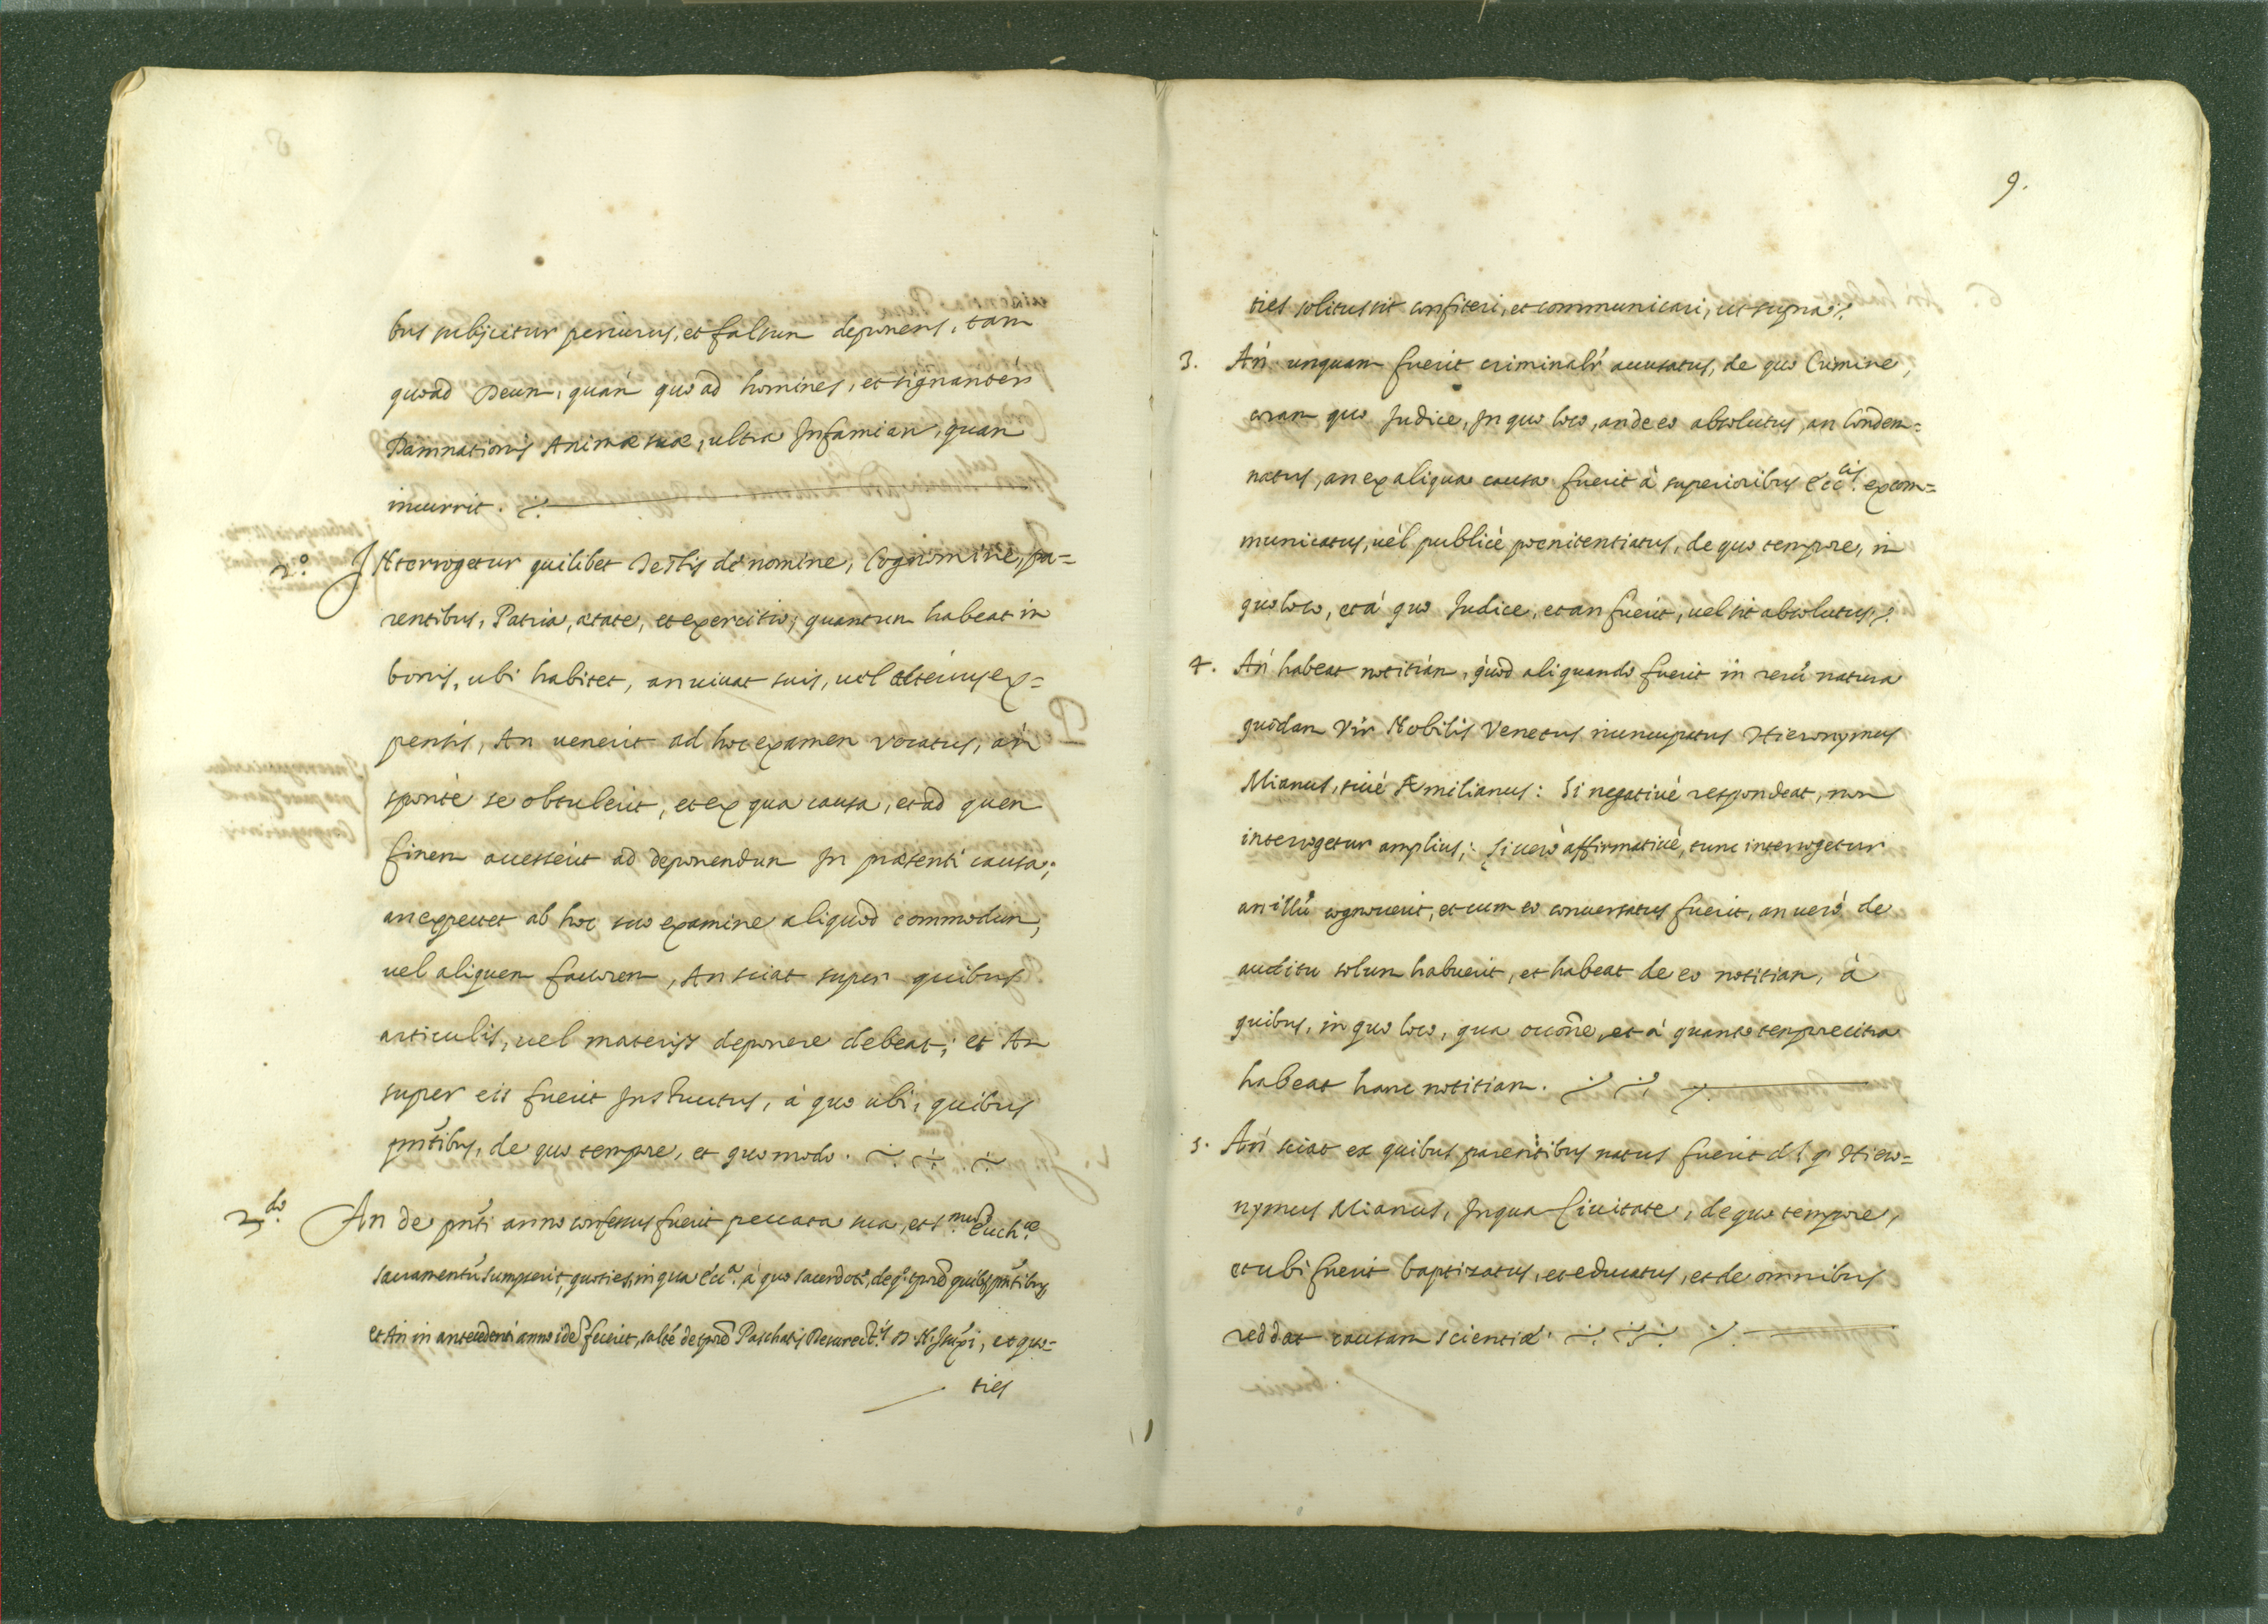 bus subijcitur periurus, et falsum deponens, tam
quoad Deum, quàm quo ad homines, et signantèr
Damnationis Animæ suæ, ultra Infamiam, quam
incurrit.
2.o INterrogetur quilibet Testis de nomine, Cognomine, pa=
rentibus, Patria, ætate, et exercitio; quantum habeat in
bonis, ubi habitet, an uiuat suis, uel alterius ex=
pensis, An uenerit ad hoc examen vocatus, àn
spontè se obtulerit, et ex qua causa, et ad quem
finem accesserit ad deponendum In præsenti causa;
an expectet ab hoc suo examine aliquod commodum,
uel aliquem fauorem, An sciat super quibus
articulis, uel materijs deponere debeat; et An
super eis fuerit Instructus, à quo ubi, quibus
pñtibus, de quo tempore, et quomodo.
2.do An de pñti anno confessus fuerit peccata sua, et S.mum Euch.æ
sacramentũ sumpserit, quoties, in qua Ecc.a, à quo sacerdote, de q.o tpre quibus pñtibus,
et An in antecedenti anno idẽ fecerit, saltẽ de tpre Paschatis Resurect.is D. N. Jesu Xpi, et quo=
ties
9.
ties solitus sit confiteri, et communicari, ut supra.
3. Àn unquam fuerit criminalr̃ accusatus, de quo Crimine,
coram quo Judice, In quo loco, an de eo absolutus, an Condem=
natus, an ex aliqua causa fuerit à superioribus Ecc.cis excom=
municatus, uèl publicè poenitentiatus, de quo tempore, in
quo loco, et à quo Judice, et an fuerit, uel sit absolutus.
4. Àn habeat notitiàm, quòd aliquando fuerit in rerũ natura
quòdam Vir Nobilis Venetus nuncupatus Hieronymus
Mianus, siuè Æmilianus: Si negatiuè respondeat, non
interrogetur amplius; Si uerò affirmatiuè, tunc interrogetur
an illũ cognouerit, et cum eo conuersatus fuerit, an uerò de
auditu solum habuerit, et habeat de eo notitiam, à
quibus, in quo loco, qua occõne, et à quanto tempore citra
habeat hanc notitiam.
5. Àn sciat ex quibus parentibus natus fuerit d.s q. Hiero=
nymus Mianus, In qua Ciuitate, de quo tempore,
et ubi fuerit baptizatus, et educatus, et de omnibus
reddat causam scientiæ.